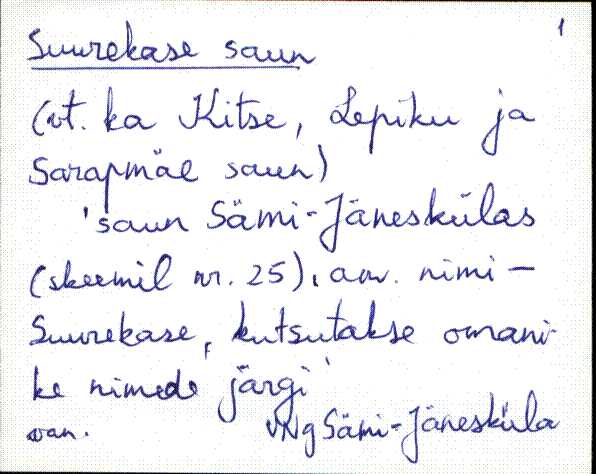 1
Suurekase saun
(vt. ka Kitse, Lepiku ja
Sarapmäe saun)
'saun Sämi-Jänesküla
(skeemil nr. 25), am. nimi –
Suurekase, kutsutakse omani-
ke nimede järgi'
van. VNg Sämi-Jänesküla